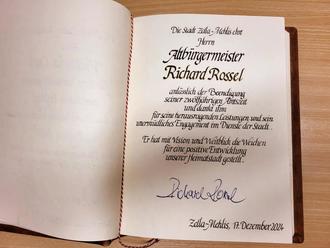 Die Stadt Zella-Mehlis ehrt
Herrn
Altbürgermeister
Richard Rossel
anlässlich der Beendigung
seiner zwölfjährigen Amtszeit
und dankt ihm
für seine herausragenden Leistungen und sein
unermüdliches Engagement im Dienste der Stadt.
Er hat mit Vision und Weitblick die Weichen
für eine positive Entwicklung
unserer Heimatstadt gestellt.
Richard Rossel
Zella-Mehlis, 17. Dezember 2024